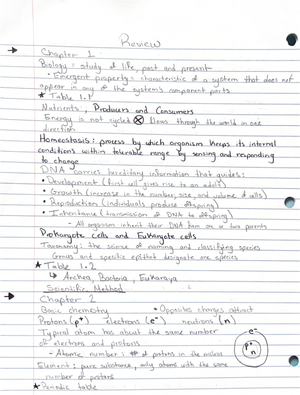 Review
Chapter 1
Biology = study of life, past and present
• Emergent property = characteristic of a system that does not
appear in any of the system's component parts
★ Table 1.1
Nutrients, Producers and Consumers
Energy is not cycled ⊗ flows through the world in one
direction
Homeostasis: process by which organism keeps its internal
conditions within tolerable range by sensing and responding
to change
DNA carries hereditary information that guides:
• Development (first cell gives rise to an adult)
• Growth (increase in the number, size, and volume of cells)
• Reproduction (individuals produce offspring)
• Inheritance (transmission of DNA to offspring)
- All organisms inherit their DNA from one or two parents
Prokaryote cells and Eukaryote cells
Taxonomy: the science of naming and classifying species
Genus and specific epithet designate one species
★ Table 1.2
↳ Archea, Bacteria, Eukaraya
Scientific Method
Chapter 2
Basic chemistry • Opposites charges attract
Protons (p⁺) electrons (e⁻) neutrons (n)
Typical atom has about the same number e⁻
of electrons and protons p⁺
- Atomic number: # of protons in the nucleus n
Element: pure substance, only atoms with the same
number of protons
★ Periodic table